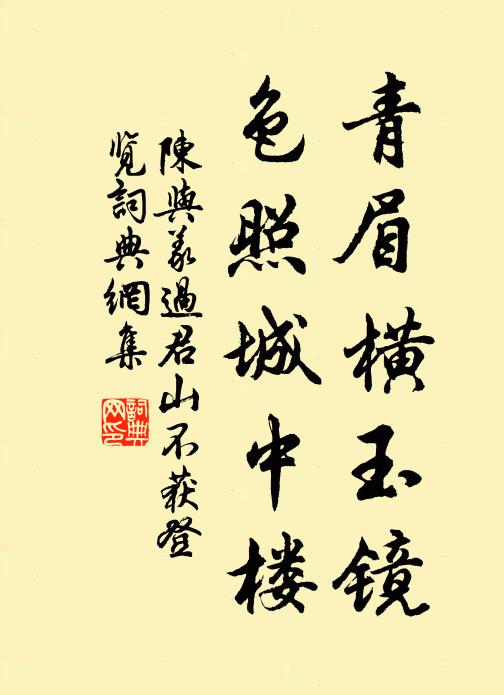 青眉橫玉镜
色照城中楼
陳與義過君山不获登
覽詞典網集
詞典
网印